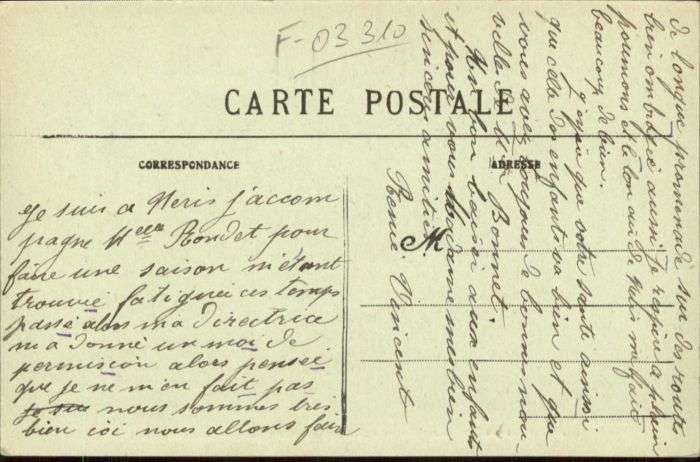 F-03310
CARTE POSTALE
CORRESPONDANCE
ADRESSE
M
Je suis a Neris j'accom
pagne Melle Rondet pour
faire une saison m'étant
trouvée fatiguée ces temps
passé alors ma Directrice
m'a donné un moi de
permission alors pensée
que je ne m'en fait pas
je suis nous sommes tres
bien ici nous allons faire
de longue promenade sur des route
bien ombragée aussi je respire a plein
poumons et le bon air de Neris me fait
beaucoup de bien.
J'espere que votre santé ainsi
que celle des enfants va bien et que
vous avez toujours de bonnes nou
velle de Bonnet.
Un bon baiser aux enfants
et pour vous Madame mes bien
sincères amitiés
Renée Vincent